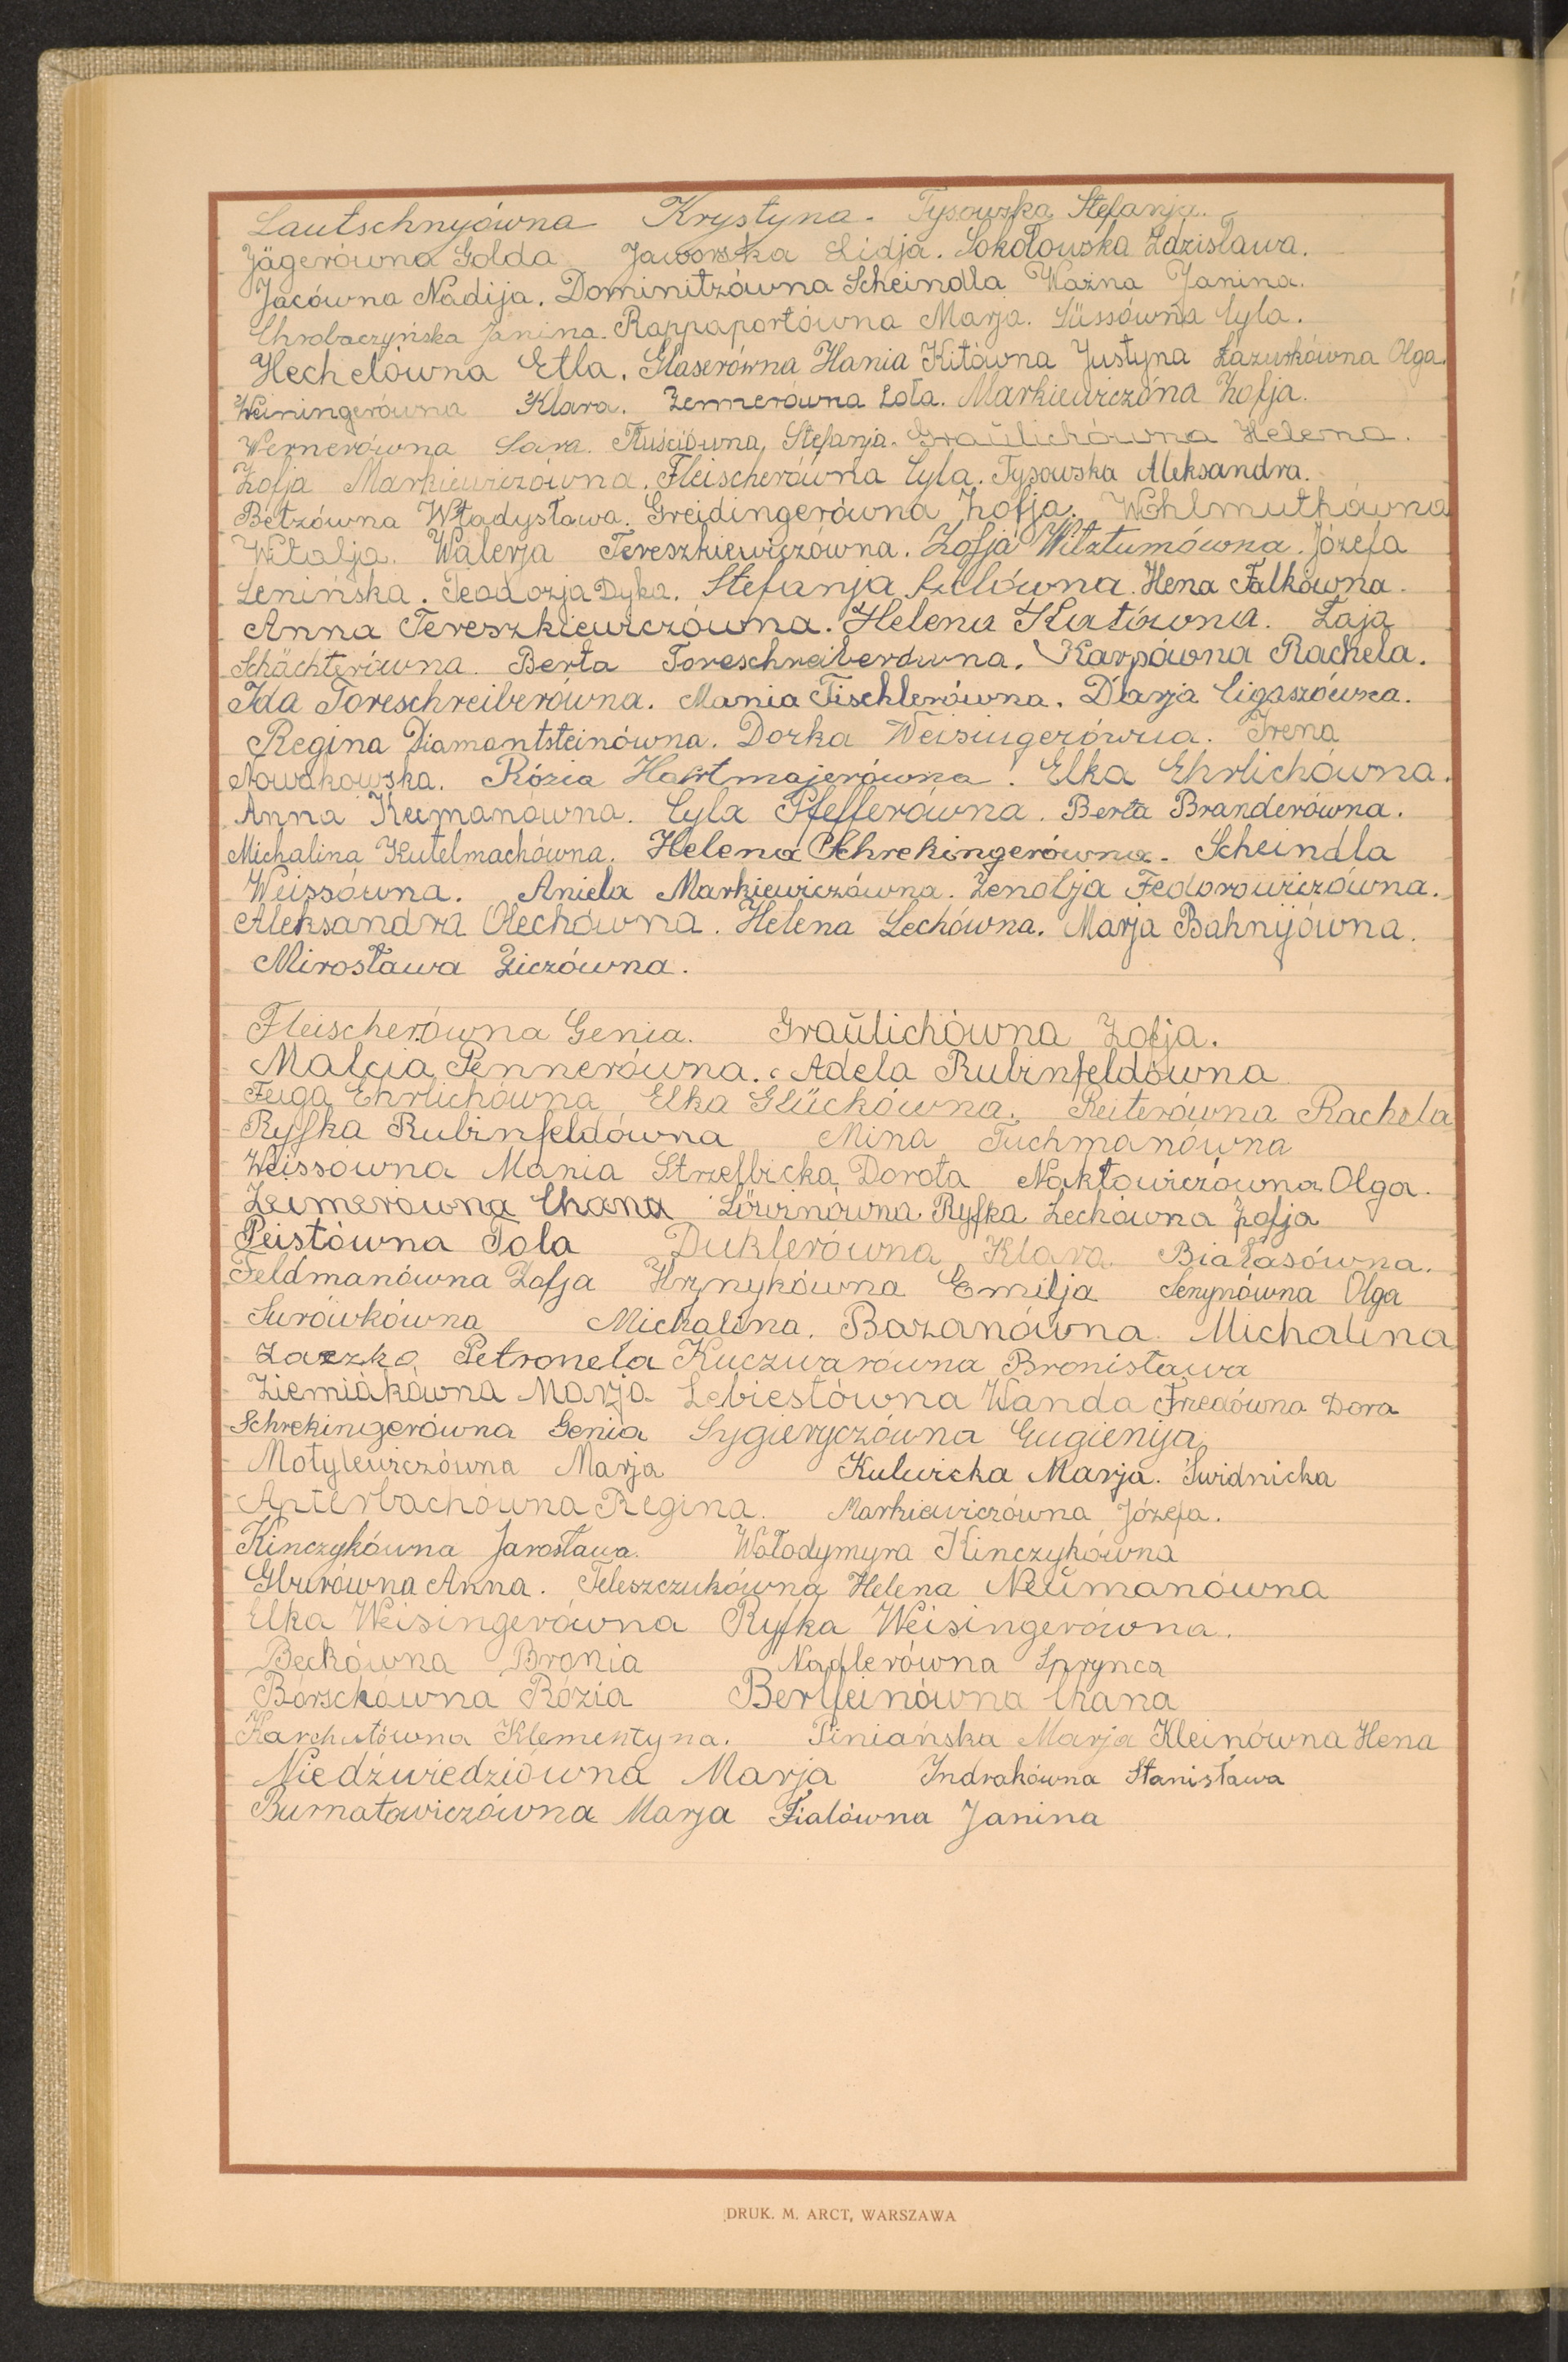 Lautschnyówna Krystyna. Tysowska Stefanja.
Jägerówna Golda Jaworska Lidja. Sokołowska Zdzisława.
Jacówna Nadija. Dominitzówna Scheindla Ważna Janina.
Chrobaczyńska Janina. Rappaportówna Marja. Süssówna Cyla.
Hechelówna Etla. Glaserówna Hania Kitówna Justyna Łazurkówna Olga.
Weiningerówna Klara. Zennerówna Lola. Markiewiczóna Zofja.
Wernerówna Sara. Tłuściówna, Stefanja. Graulichówna Helena.
Zofja Markiewiczówna. Fleischerówna Cyla. Tysowska Aleksandra.
Betzówna Władysława. Greidingerówna Zofja. Wohlmuthówna
Witalja. Walerja Tereszkiewiczówna. Zofja Witztumówna. Józefa
Lenińska. Teodozja Dyka. Stefanja Szulówna. Hena Falkówna.
Anna Tereszkiewiczówna. Helena Katówna. Łaja
Schächterówna. Berta Toreschreiberówna. Karpówna Rachela.
Ida Toreschreiberówna. Mania Tischlerówna. Darja Cigaszówna.
Regina Diamantsteinówna. Dorka Weisingerówna. Irena
Nowakowska. Rózia Hartmajerówna. Elka Ehrlichówna.
Anna Neumanówna. Cyla Pfefferówna. Berta Branderówna.
Michalina Kutelmachówna. Helena Schrekingerówna. Scheindla
Weissówna. Aniela Markiewiczówna. Zenobja Fedorowiczówna.
Aleksandra Olechówna. Helena Lechówna. Marja Bahnijówna.
Mirosława Ziczówna.
Fleischerówna Genia. Graulichówna Zofja.
Malcia Pennerówna. Adela Rubinfeldówna
Feiga Ehrlichówna Elka Glückówna. Reiterówna Rachela
Ryfka Rubinfeldówna Mina Tuchmanówna
Weissówna Mania Strzelbicka Dorota Nakłowiczówna Olga.
Zeimerówna Chana Löwinówna Ryfka Lechówna Zofja
Peistówna Tola Duklerówna Klara Białasówna.
Feldmanówna Zofja Hrynykówna Emilja Senynówna Olga
Surówkówna Michalina. Bazanówna Michalina
Zaczko Petronela Kuczwarówna Bronisława
Ziemiakówna Marja Lebiestówna Wanda Friedówna Dora
Schrekingerówna Genia Sygieryczówna Eugienija
Motylewiczówna Marja Kulwicka Marja. Swidnicka
Anterbachówna Regina. Markiewiczówna Józefa.
Kinczykówna Jarosława. Wołodymyra Kinczykówna
Gburówna Anna. Teleszczukówna Helena Neumanówna
Elka Weisingerówna Ryfka Weisingerówna.
Beckówna Bronia Nadlerówna Sprynca
Borschówna Rózia Berlfeinówna Chana
Karchutówna Klementyna. Piniańska Marja Kleinówna Hena
Niedźwiedziówna Marja Indrakówna Stanisława
Burnatowiczówna Marja Fialówna Janina
DRUK. M. ARCT, WARSZAWA